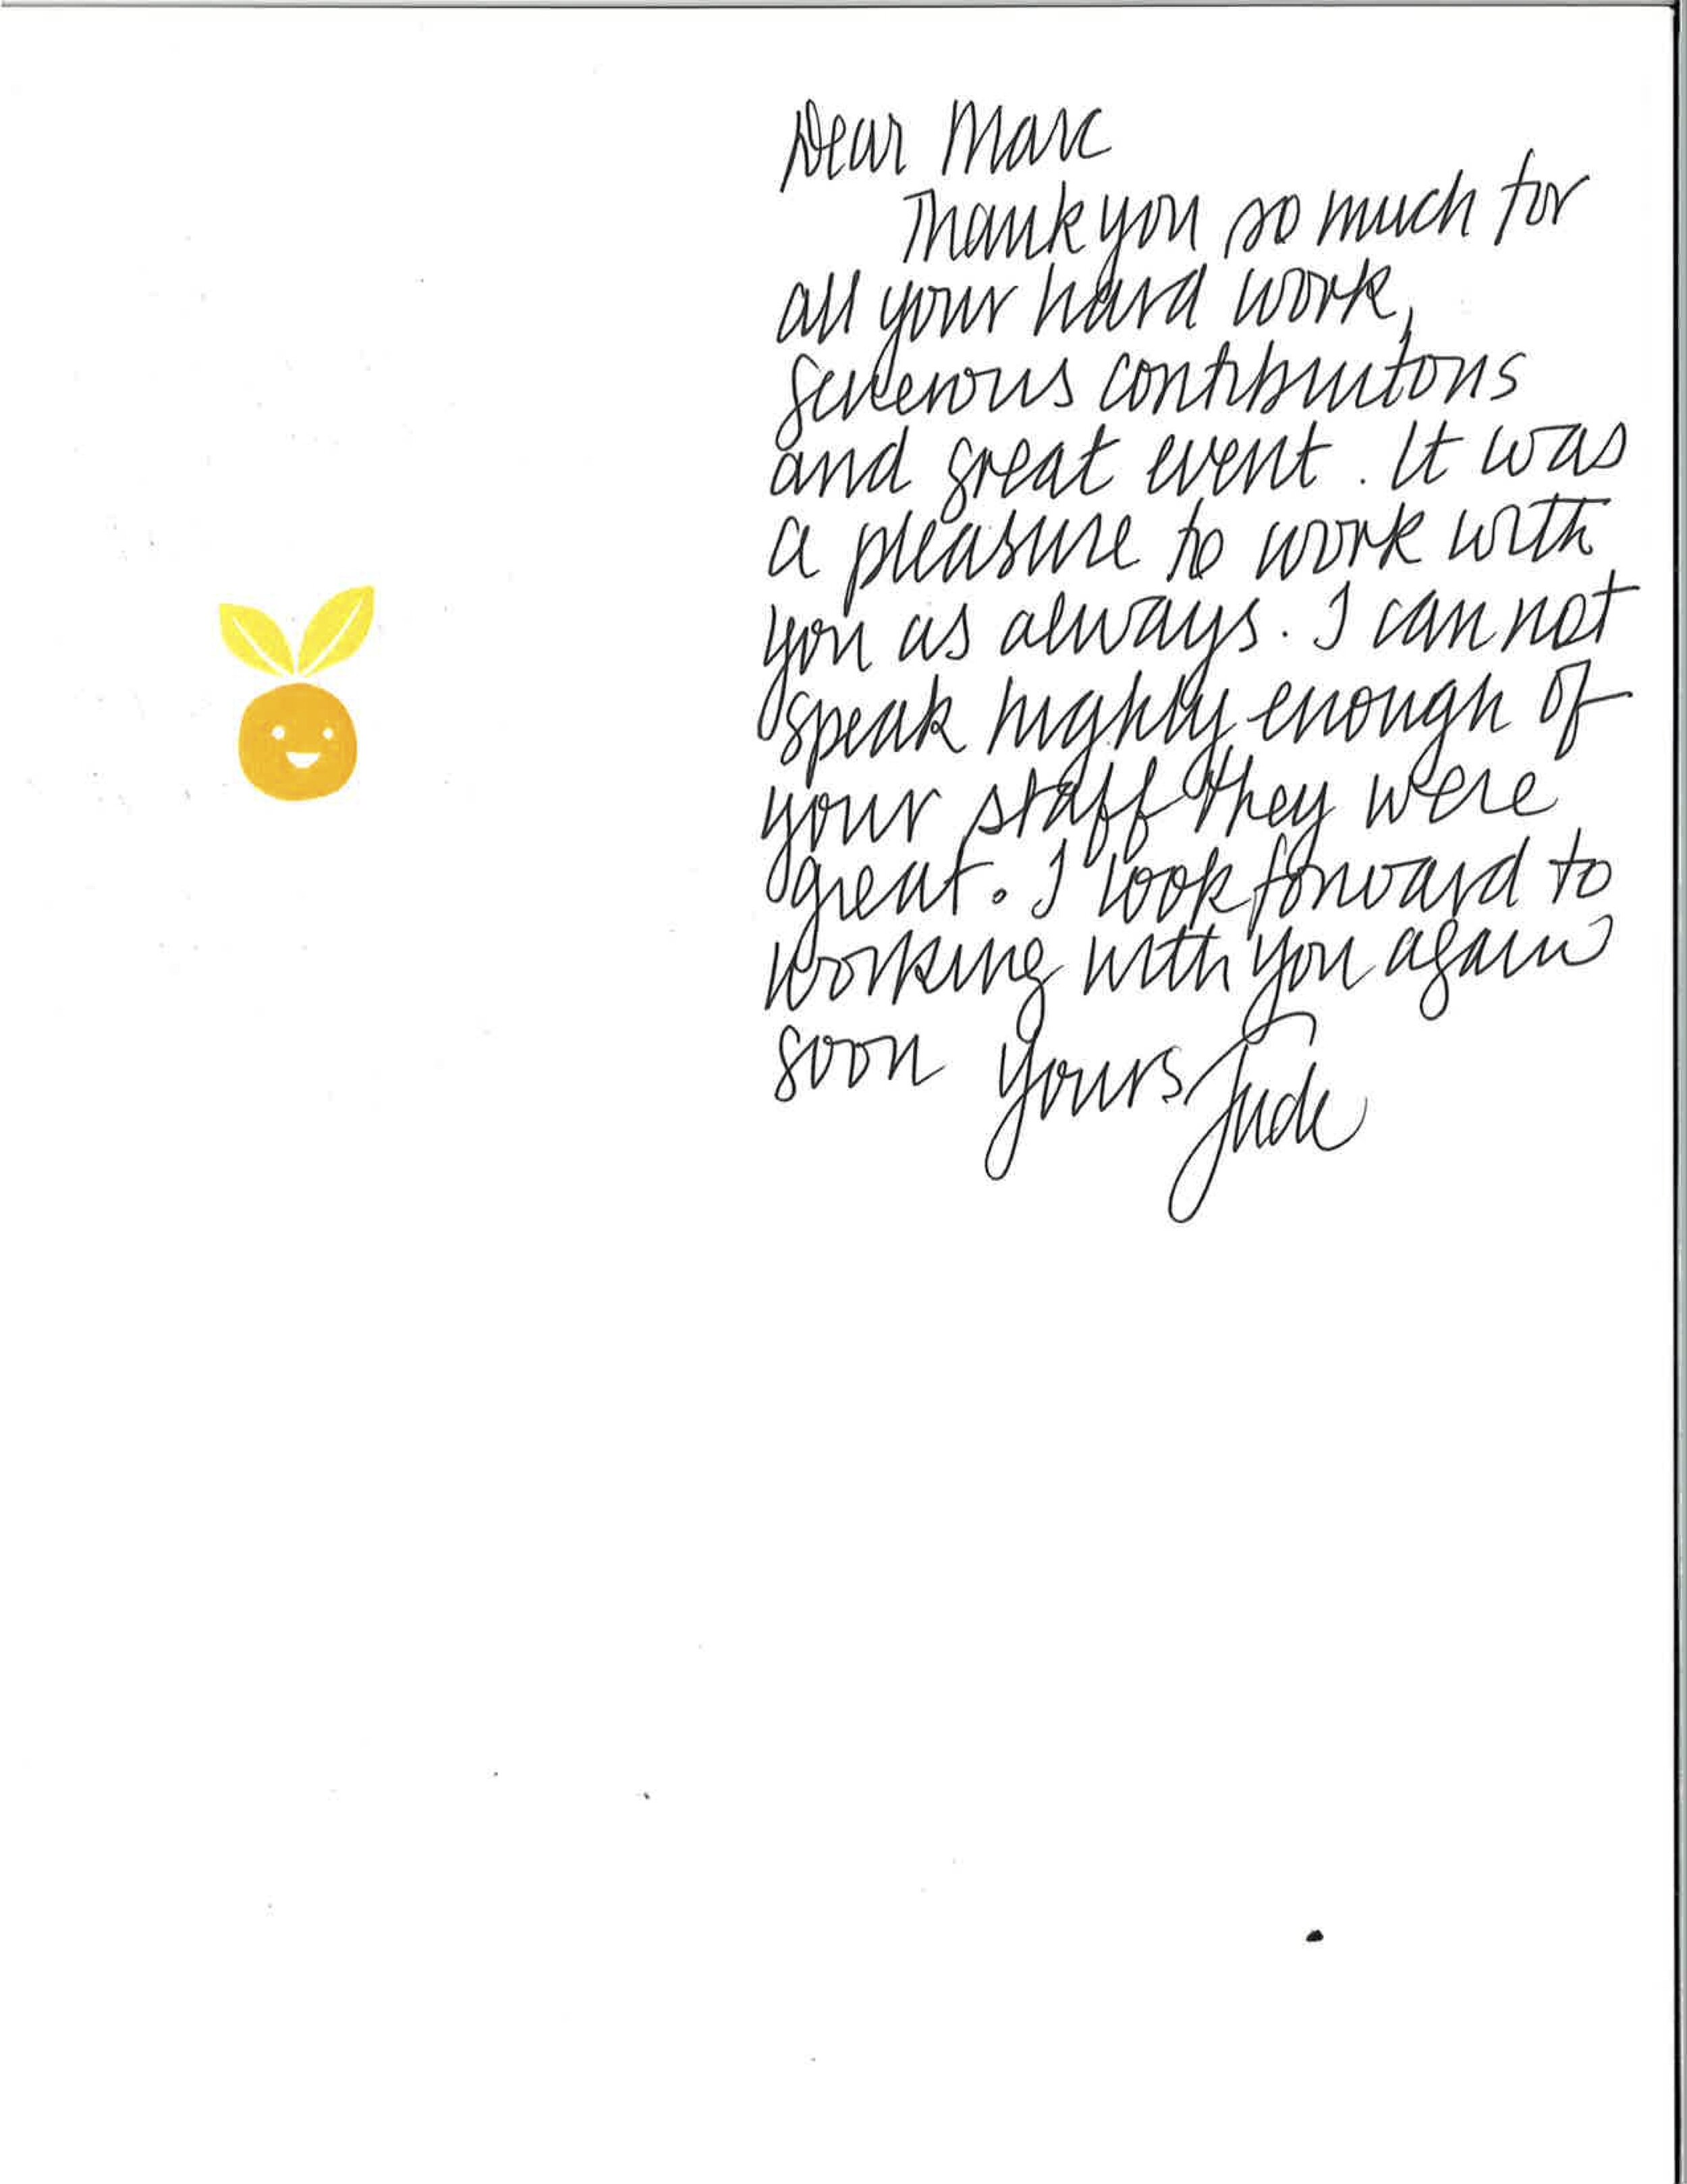 Dear Marc
Thank you so much for
all your hard work,
generous contributons
and great event. It was
a pleasure to work with
you as always. I can not
speak highly enough of
your staff they were
great. I look forward to
working with you again
soon yours Jude